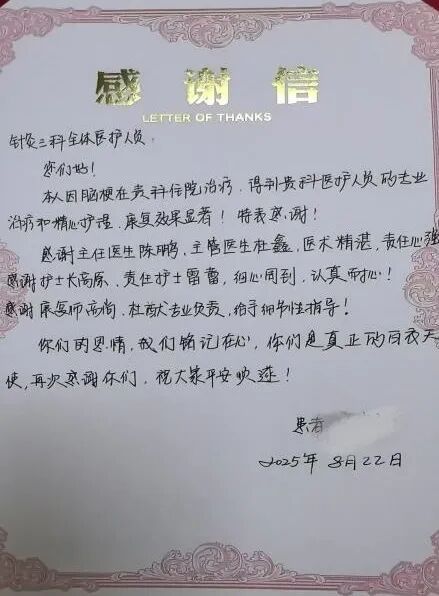 感谢信
LETTER OF THANKS
针灸三科全体医护人员.
您们好!
本人因脑梗在贵科住院治疗,得到贵科医护人员的专业
治疗和精心护理,康复效果显著!特表感谢!
感谢主任医生陈鹏,主管医生杜鑫,医术精湛,责任心强
感谢护士长高原,责任护士雷蕾,细心周到,认真耐心!
感谢康复师高尚,杜猷专业负责,给予细致性指导!
你们的恩情,我们铭记在心,你们是真正的白衣天
使,再次感谢你们,祝大家平安快乐!
患者
2025年8月22日